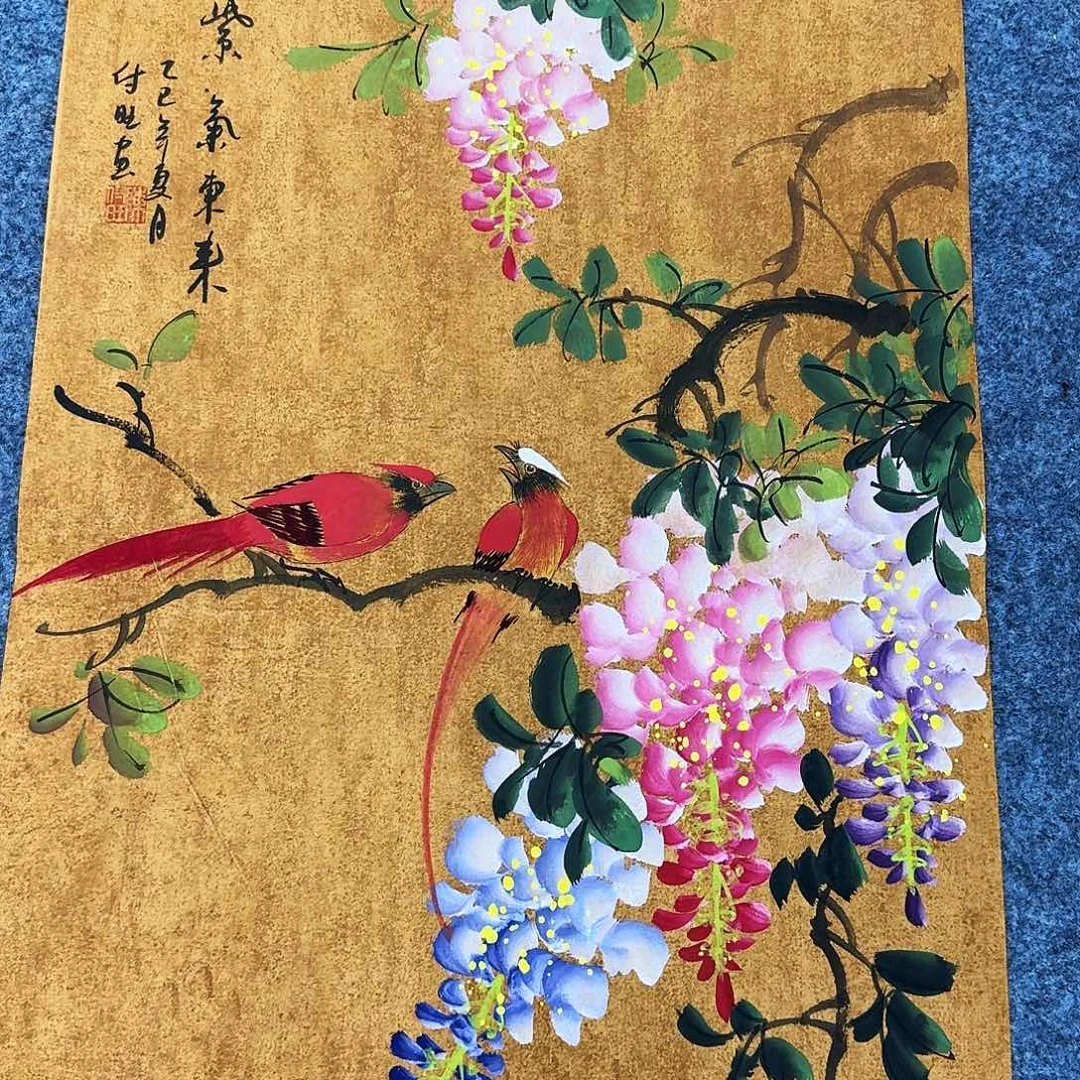 紫氣東来
乙巳年夏月
付旺画